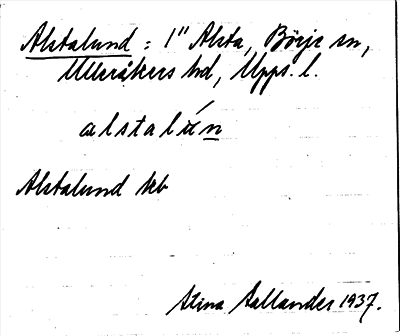 Alstalund : 1" Alsta, Börje sn,
Ulleråkers hd, Upps. l.
alstalún
Alstalund kb
Stina Sallander 1937.